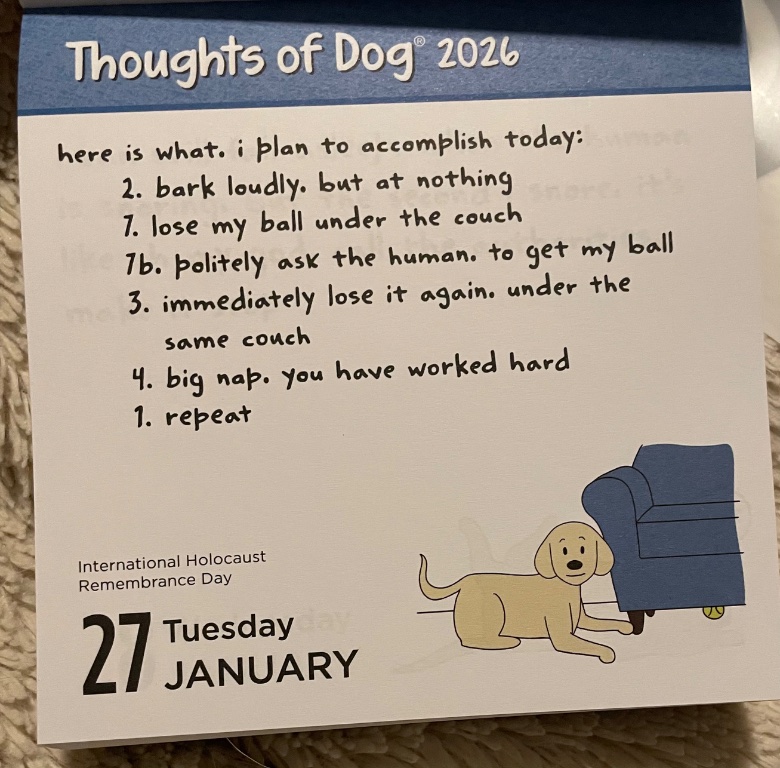 Thoughts of Dog® 2026
here is what. i plan to accomplish today:
2. bark loudly. but at nothing
7. lose my ball under the couch
7b. politely ask the human. to get my ball
3. immediately lose it again. under the
same couch
4. big nap. you have worked hard
1. repeat
International Holocaust
Remembrance Day
27 Tuesday
JANUARY